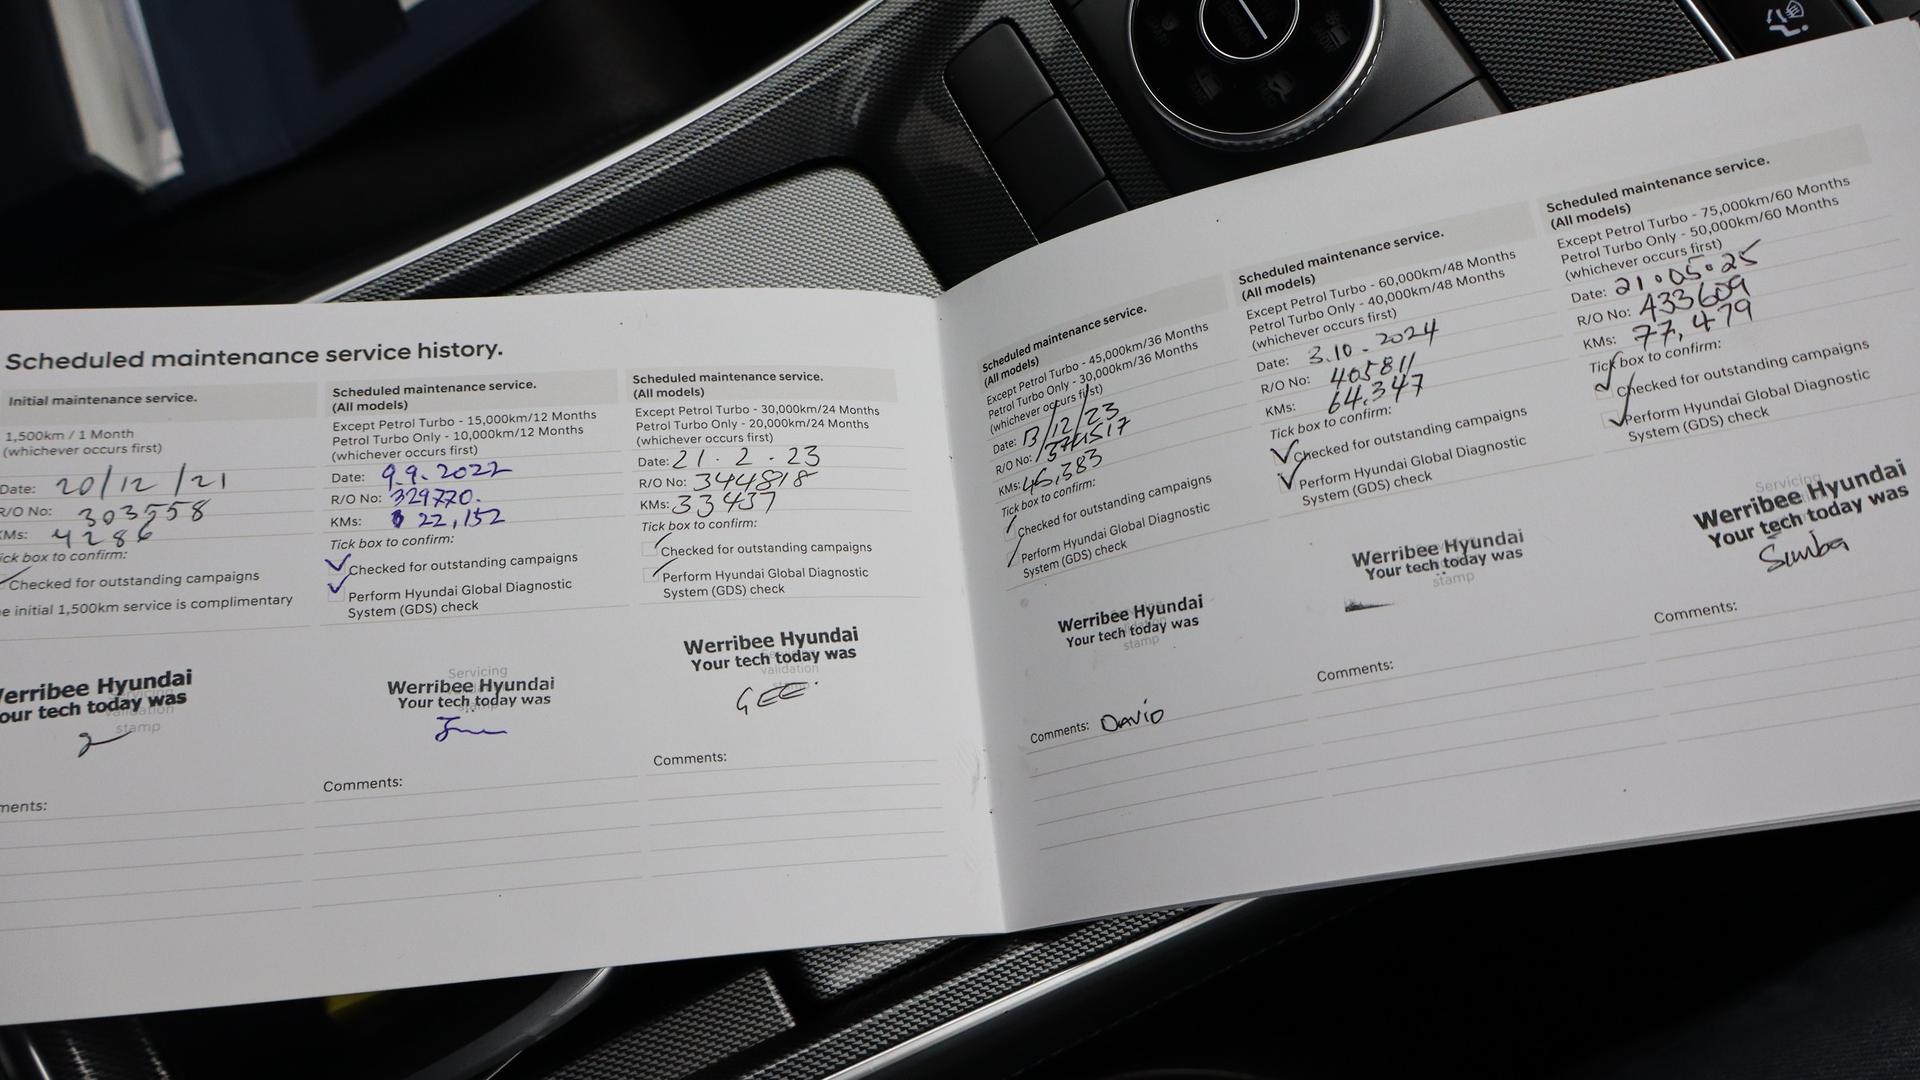 Scheduled maintenance service history.
Initial maintenance service.
1,500km / 1 Month
(whichever occurs first)
Date: 20/12/21
R/O No: 303558
KMs: 4286
ick box to confirm:
Checked for outstanding campaigns
e initial 1,500km service is complimentary
erribee Hyundai
our tech today was
stamp
ments:
Scheduled maintenance service.
(All models)
Except Petrol Turbo - 15,000km/12 Months
Petrol Turbo Only - 10,000km/12 Months
(whichever occurs first)
Date: 9.9.2022
R/O No: 329770.
KMs: 22,152
Tick box to confirm:
Checked for outstanding campaigns
Perform Hyundai Global Diagnostic
System (GDS) check
Servicing
Werribee Hyundai
Your tech today was
Comments:
Scheduled maintenance service.
(All models)
Except Petrol Turbo - 30,000km/24 Months
Petrol Turbo Only - 20,000km/24 Months
(whichever occurs first)
Date: 21.2.23
R/O No: 344818
KMs: 33437
Tick box to confirm:
Checked for outstanding campaigns
Perform Hyundai Global Diagnostic
System (GDS) check
Werribee Hyundai
Your tech today was
validation
GEE
Comments:
Scheduled maintenance service.
(All models)
Except Petrol Turbo - 45,000km/36 Months
Petrol Turbo Only - 30,000km/36 Months
(whichever occurs first)
Date: 13/12/23
R/O No:
KMs: 46,383
Tick box to confirm:
Checked for outstanding campaigns
Perform Hyundai Global Diagnostic
System (GDS) check
Werribee Hyundai
Your tech today was
stamp
Comments: DAVID
Scheduled maintenance service.
(All models)
Except Petrol Turbo - 60,000km/48 Months
Petrol Turbo Only - 40,000km/48 Months
(whichever occurs first)
Date: 3.10.2024
R/O No: 405811
KMs: 64,347
Tick box to confirm:
Checked for outstanding campaigns
Perform Hyundai Global Diagnostic
System (GDS) check
Werribee Hyundai
Your tech today was
stamp
Comments:
Scheduled maintenance service.
(All models)
Except Petrol Turbo - 75,000km/60 Months
Petrol Turbo Only - 50,000km/60 Months
(whichever occurs first)
Date: 21.05.25
R/O No: 433609
KMs: 77,479
Tick box to confirm:
Checked for outstanding campaigns
Perform Hyundai Global Diagnostic
System (GDS) check
Servicing
Werribee Hyundai
Your tech today was
Simba
Comments: